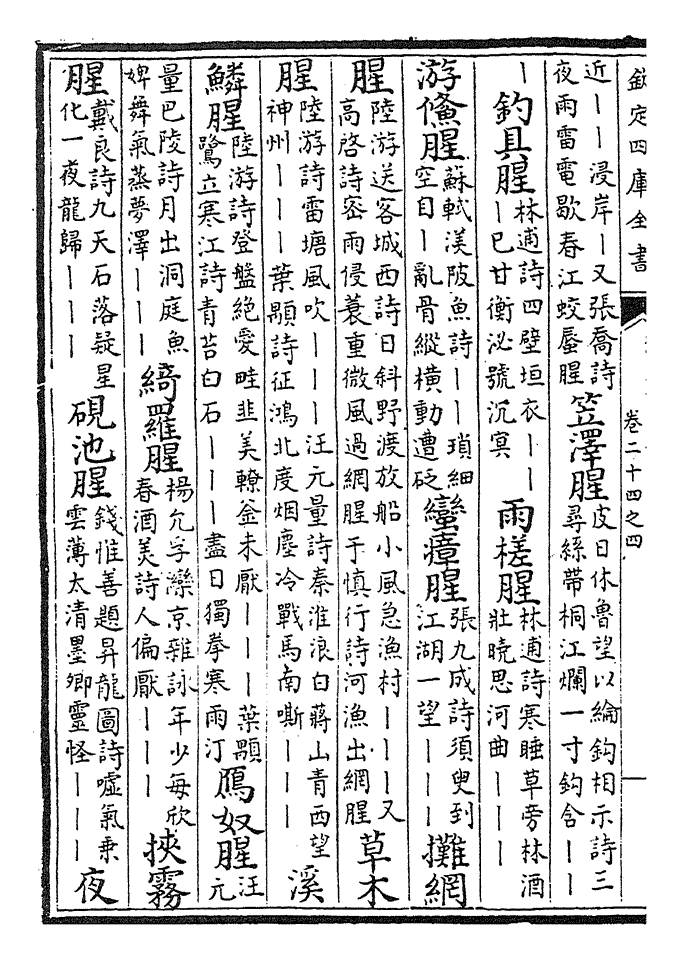 欽定四庫全書
卷二十四之四
近｜｜浸岸｜又張喬詩
夜雨雷電歇春江蛟蜃腥
笠澤腥
皮日休魯望以綸鈎相示詩三
尋絲帶桐江爛一寸鈎含｜｜
｜
釣具腥
林逋詩四壁垣衣｜｜
｜已甘衡泌號沉冥
雨槎腥
林逋詩寒睡草旁林酒
壯曉思河曲｜｜｜
游鯈腥
蘇軾渼陂魚詩｜｜瑣細
空自｜亂骨縱橫動遭砭
蠻瘴腥
張九成詩須臾到
江湖一望｜｜｜
攤網
腥
陸游送客城西詩日斜野渡放船小風急漁村｜｜｜又
高啓詩密雨侵蓑重微風過網腥于慎行詩河漁出網腥
草木
腥
陸游詩雷塘風吹｜｜｜汪元量詩秦淮浪白蔣山青西望
神州｜｜｜葉顒詩征鴻北度烟塵冷戰馬南嘶｜｜｜
溪
鱗腥
陸游詩登盤絶愛畦韭美轑金未厭｜｜｜葉顒
鷺立寒江詩青苔白石｜｜｜盡日獨拳寒雨汀
鴈奴腥
汪
元
量巴陵詩月出洞庭魚
婢舞氣蒸夢澤｜｜｜
綺羅腥
楊允孚灤京雜詠年少每欣
春酒美詩人偏厭｜｜｜
挾霧
腥
戴良詩九天石落疑星
化一夜龍歸｜｜｜
硯池腥
錢惟善題昇龍圖詩噓氣乗
雲薄太清墨卿靈怪｜｜｜
夜